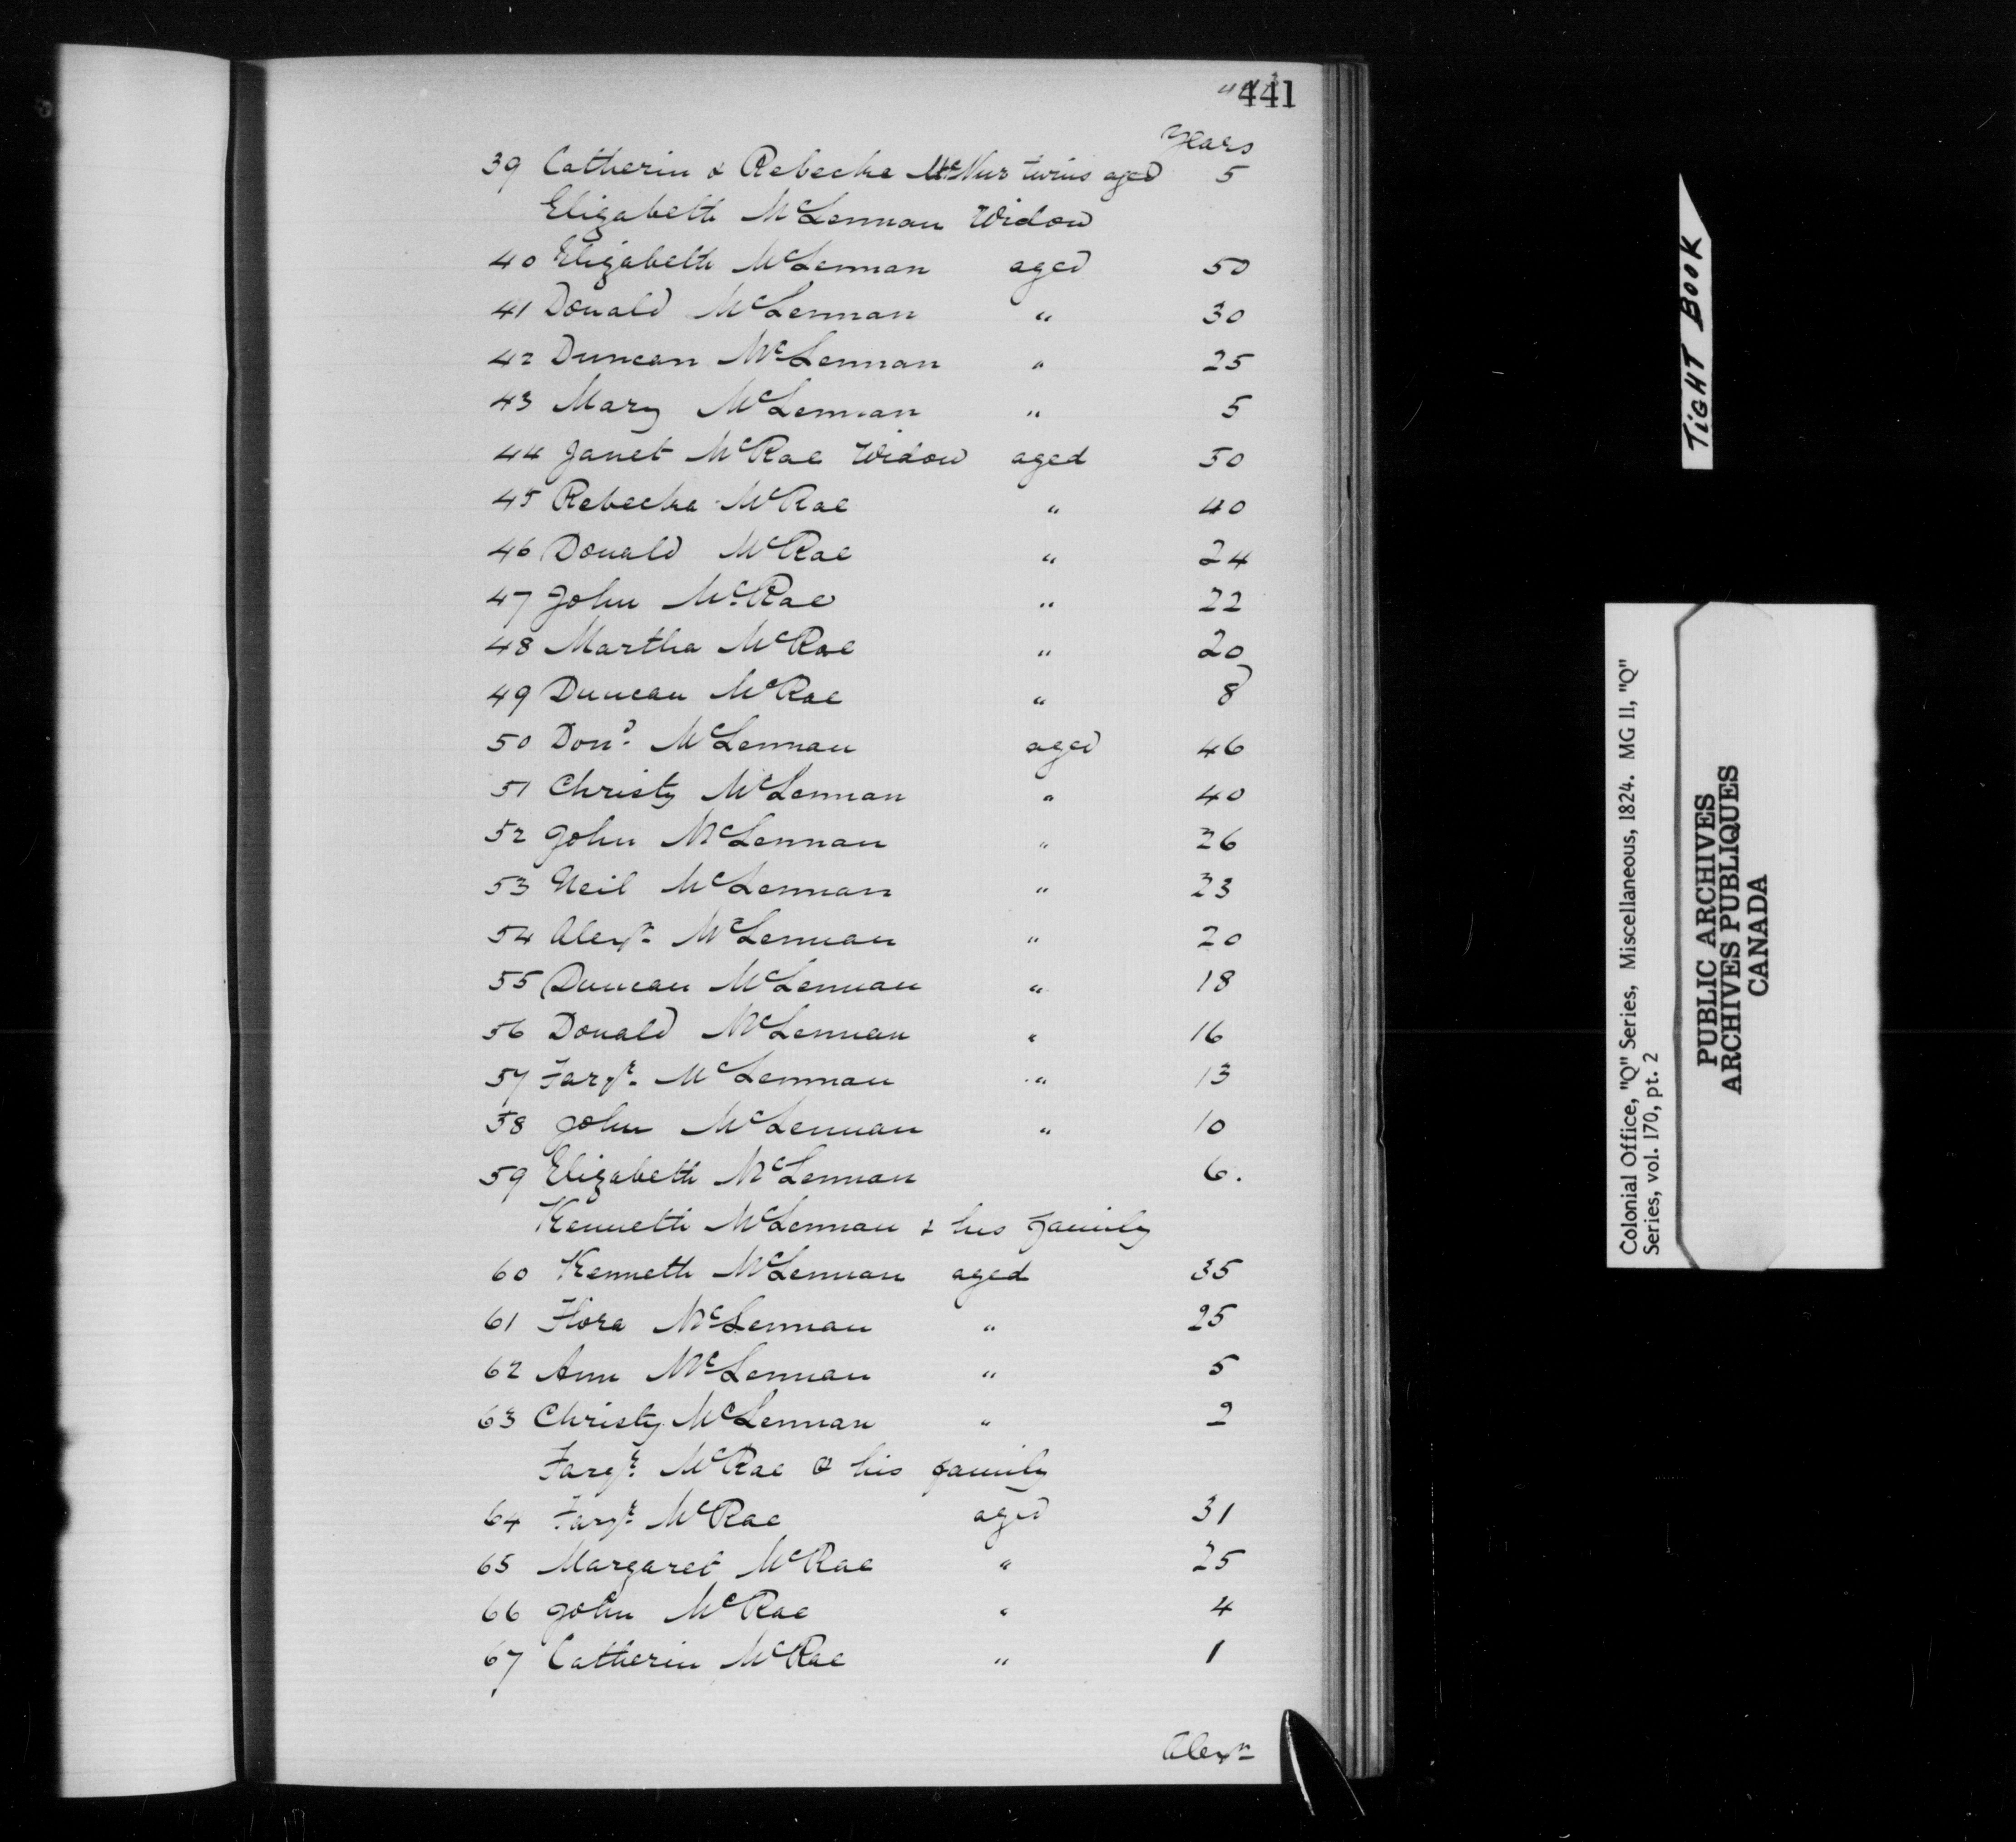 441
Years
39 Catherin & Rebecka twins aged 5
Elizabeth McLennan Widow
40 Elizabeth McLennan aged 50
41 Donald McLennan " 30
42 Duncan McLennan " 25
43 Mary McLennan " 5
44 Janet McRae Widow aged 50
45 Rebecka McRae " 40
46 Donald McRae " 24
47 John McRae " 22
48 Martha McRae " 20
49 Duncan McRae " 8
50 Dond. McLennan aged 46
51 Christy McLennan " 40
52 John McLennan " 26
53 Neil McLennan " 23
54 Alexr. McLennan " 20
55 Duncan McLennan " 18
56 Donald McLennan " 16
57 Farqr. McLennan " 13
58 John McLennan " 10
59 Elizabeth McLennan 6.
Kenneth McLennan & his family
60 Kenneth McLennan aged 35
61 Flora McLennan " 25
62 Ann McLennan " 5
63 Christy McLennan " 2
Farqr. McRae & his family
64 Farqr. McRae aged 31
65 Margaret McRae " 25
66 John McRae " 4
67 Catherin McRae " 1
Alexr
TiGHT BOOK
Colonial Office, "Q" Series, Miscellaneous, 1824. MG 11, "Q"
Series, vol. 170, pt. 2
PUBLIC ARCHIVES
ARCHIVES PUBLIQUES
CANADA